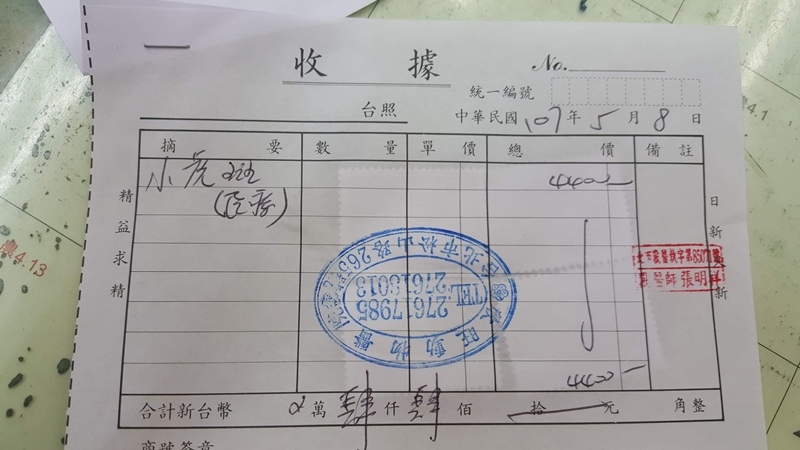 收據
No.
統一編號
台照
中華民國 107 年 5 月 8 日
摘要 數量 單價 總價 備註
小虎斑 4400
(醫療)
精益求精
日新又新
醫師 張明
台北市松山路265
TEL
27617985
27618013
旺動物醫
4400
合計新台幣 萬 肆 仟 肆 佰 拾 元 角整
商號簽章
4.1
農4.13